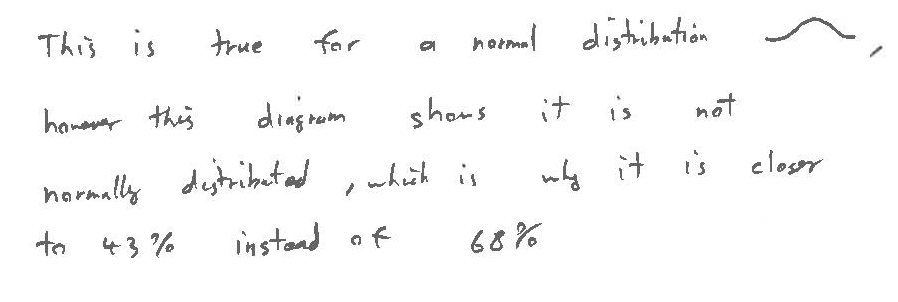 This is true for a normal distribution ,
however this diagram shows it is not
normally distributed , which is why it is closer
to 43% instead of 68%